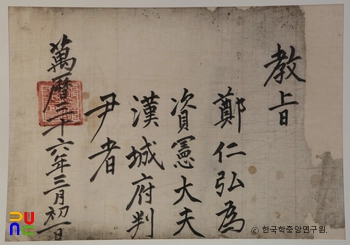 教旨
鄭仁弘為
資憲大夫
漢城府判
尹者
萬曆三十六年三月初一日
© 한국학중앙연구원